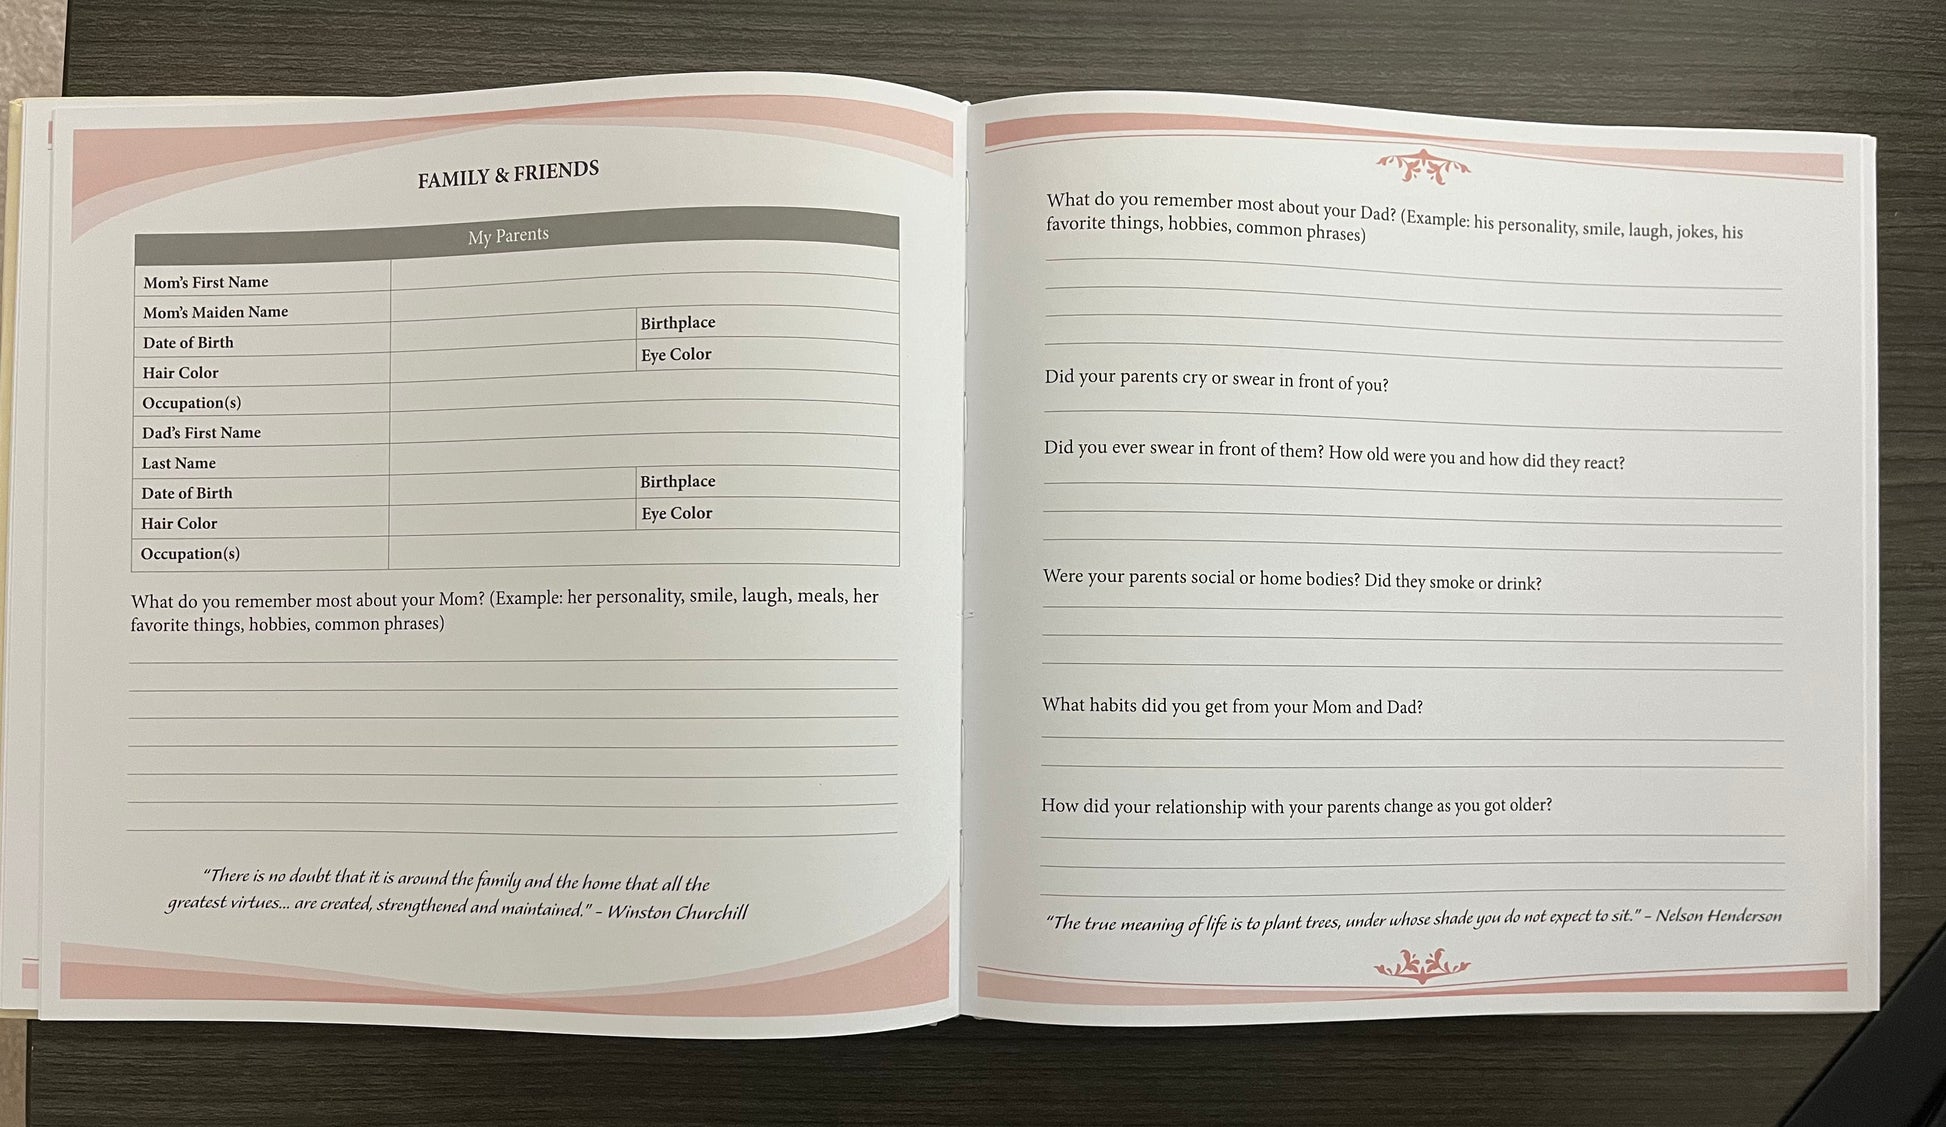 FAMILY & FRIENDS
My Parents
Mom's First Name
Mom's Maiden Name
Date of Birth
Birthplace
Hair Color
Eye Color
Occupation(s)
Dad's First Name
Last Name
Date of Birth
Birthplace
Hair Color
Eye Color
Occupation(s)
What do you remember most about your Mom? (Example: her personality, smile, laugh, meals, her
favorite things, hobbies, common phrases)
“There is no doubt that it is around the family and the home that all the
greatest virtues... are created, strengthened and maintained.” – Winston Churchill
What do you remember most about your Dad? (Example: his personality, smile, laugh, jokes, his
favorite things, hobbies, common phrases)
Did your parents cry or swear in front of you?
Did you ever swear in front of them? How old were you and how did they react?
Were your parents social or home bodies? Did they smoke or drink?
What habits did you get from your Mom and Dad?
How did your relationship with your parents change as you got older?
“The true meaning of life is to plant trees, under whose shade you do not expect to sit.” – Nelson Henderson